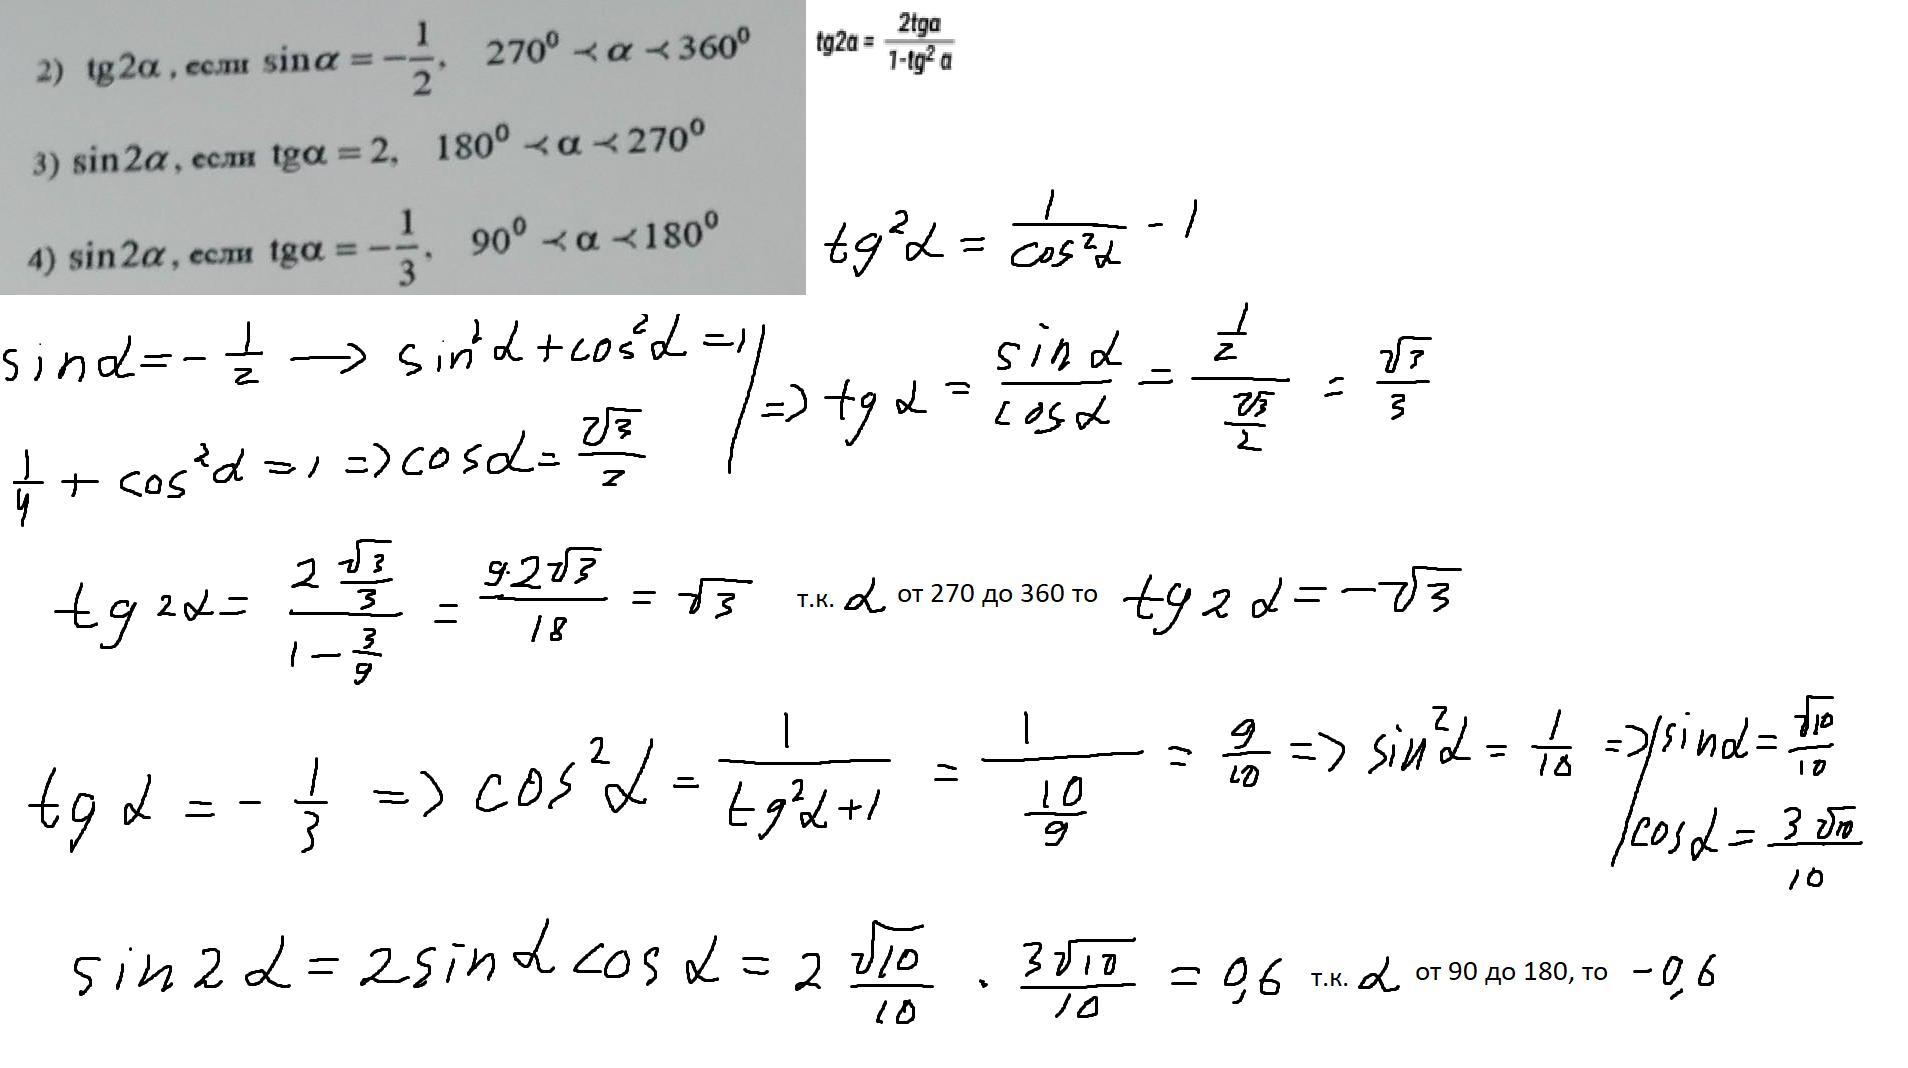 2) tg2α, если sinα = -1/2, 270⁰ ≺ α ≺ 360⁰
3) sin2α, если tgα = 2, 180⁰ ≺ α ≺ 270⁰
4) sin2α, если tgα = -1/3, 90⁰ ≺ α ≺ 180⁰
tg2a = 2tga / 1-tg² a
tg²α = 1/cos²α - 1
sinα = - 1/2 → sin²α + cos²α = 1
1/4 + cos²α = 1 => cosα = √3/2
=> tgα = sinα/cosα = (1/2)/(√3/2) = √3/3
tg2α = (2 √3/3)/(1 - 3/9) = 9·2√3/18 = √3 т.к. α от 270 до 360 то tg2α = -√3
tgα = - 1/3 => cos²α = 1/(tg²α+1) = 1/(10/9) = 9/10 => sin²α = 1/10 => sinα = √10/10
cosα = 3√10/10
sin2α = 2sinα cosα = 2 √10/10 · 3√10/10 = 0,6 т.к. α от 90 до 180, то -0,6